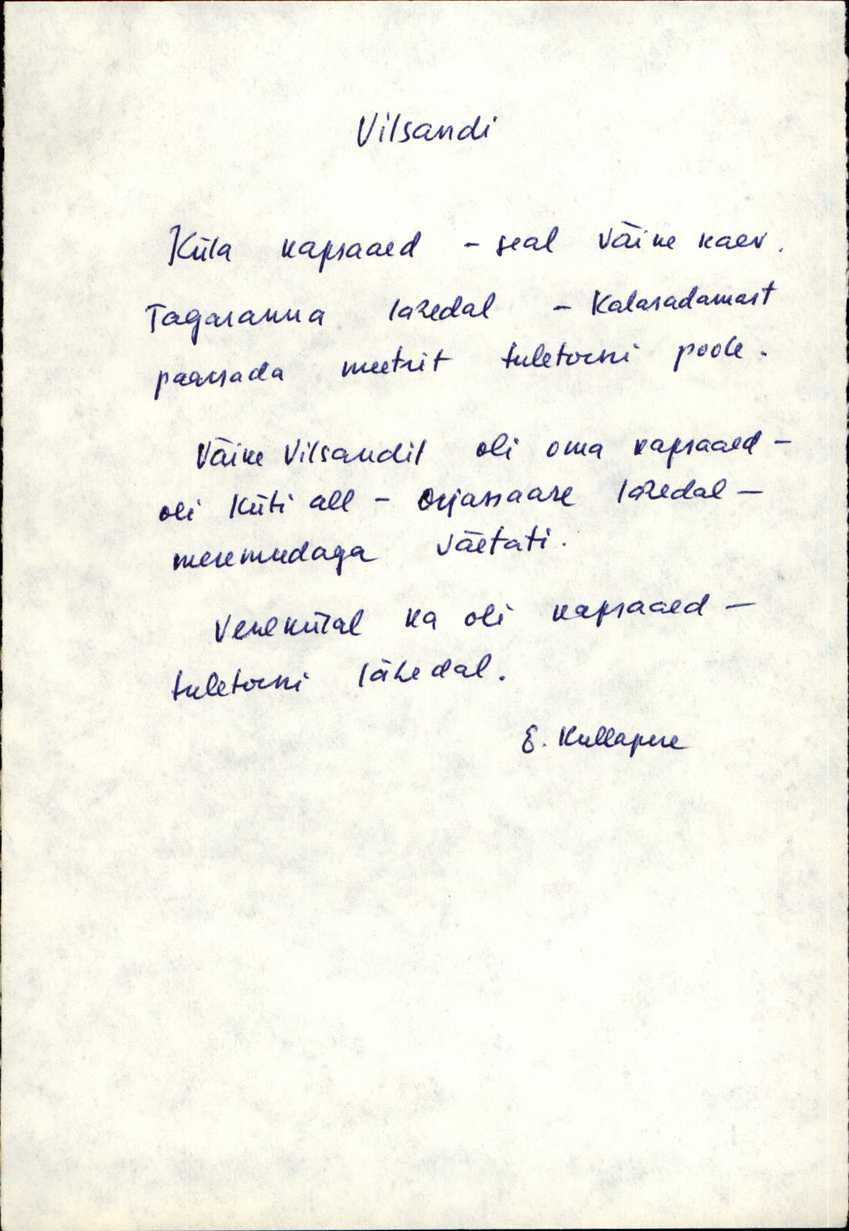 Vilsandi
Küla kapsaaed - seal väike kaev.
Tagaranna lahedal - Kalasadamast
paarsada meetrit tuletorni poole.
Väike Vilsandil oli oma kapsaaed -
oli Küti all - Orjassaare lahedal -
meremudaga väetati.
Venekülal ka oli kapsaaed -
tuletorni lähedal.
E. Kullapere